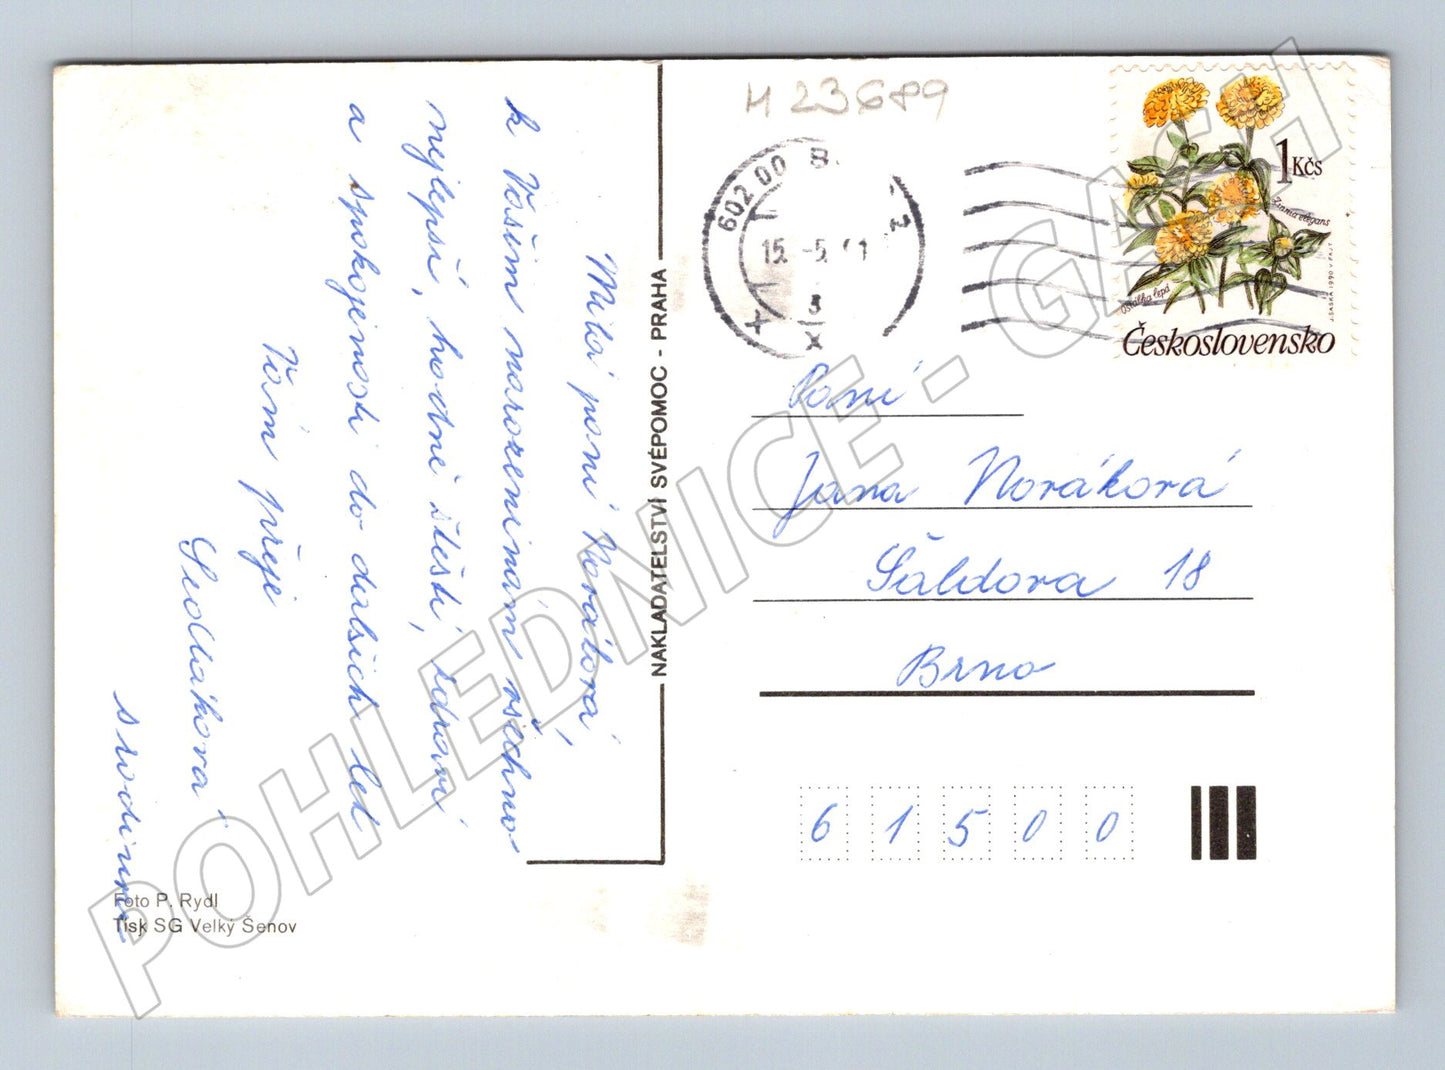 Milá paní Nováková,
k Vašim narozeninám všechno
nejlepší, hodně štěstí, zdraví
a spokojenosti do dalších let
Vám přeje
Sedláková
s rodinou
Foto P. Rydl
Tisk SG Velký Šenov
NAKLADATELSTVÍ SVÉPOMOC - PRAHA
H 23689
602 00 B
15. -5. 91
1 Kčs
Zinnia elegans
Ostálka lepá
J. SASKA 1990 V. FAJT
Československo
Paní
Jana Nováková
Šaldova 18
Brno
6 1 5 0 0
POHLEDNICE - GASH